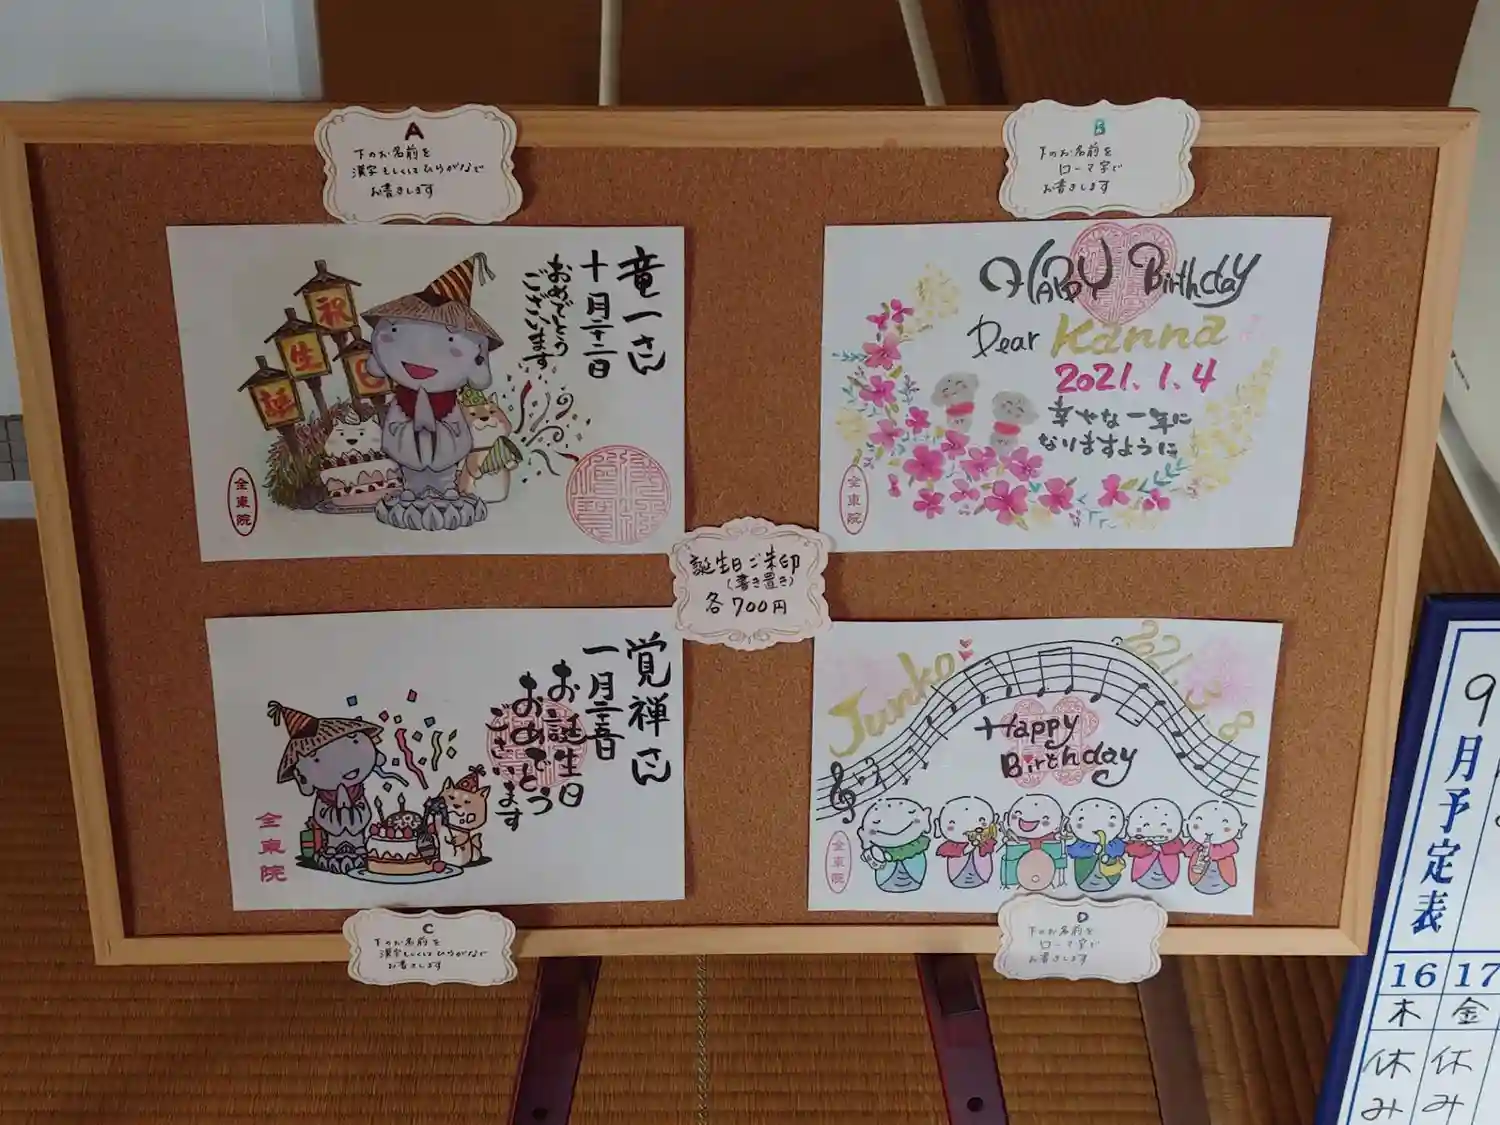 A
下のお名前を
漢字もしくはひらがなで
お書きします
B
下のお名前を
ローマ字で
お書きします
竜一さん
十月二十二日
おめでとう
ございます
祝
生
誕
全東院
Happy Birthday
Dear Kanna
2021.1.4
幸せな一年に
なりますように
全東院
誕生日ご朱印
(書き置き)
各700円
覚禅さん
お誕生日
おめでとう
ございます
全東院
Junko
Happy
Birthday
全東院
C
下のお名前を
漢字もしくはひらがなで
お書きします
D
下のお名前を
ローマ字で
お書きします
9月予定表
16 17
木 金
休み 休み